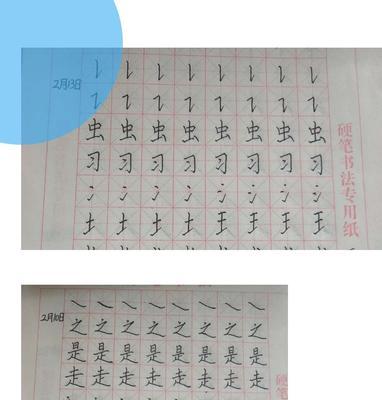 2月13日
虫 虫 虫 虫 虫 虫 虫 虫
习 习 习 习 习 习 习 习
冫 冫 冫 冫 冫 冫 冫 冫
土 土 土 土 王 王 王 王
硬笔书法专用纸
2月10日
㇏ ㇏ ㇏ ㇏ ㇏ ㇏ ㇏ ㇏
之 之 之 之 之 之 之 之
是 是 是 是 是 是 是 是
走 走 走 走 走 走 走 走
硬